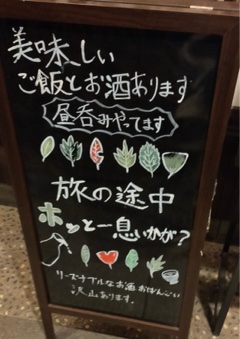 美味しい
ご飯とお酒あります
昼呑みやってます
旅の途中
ホッと一息いかが？
リーズナブルなお酒 おばんざい
沢山あります。